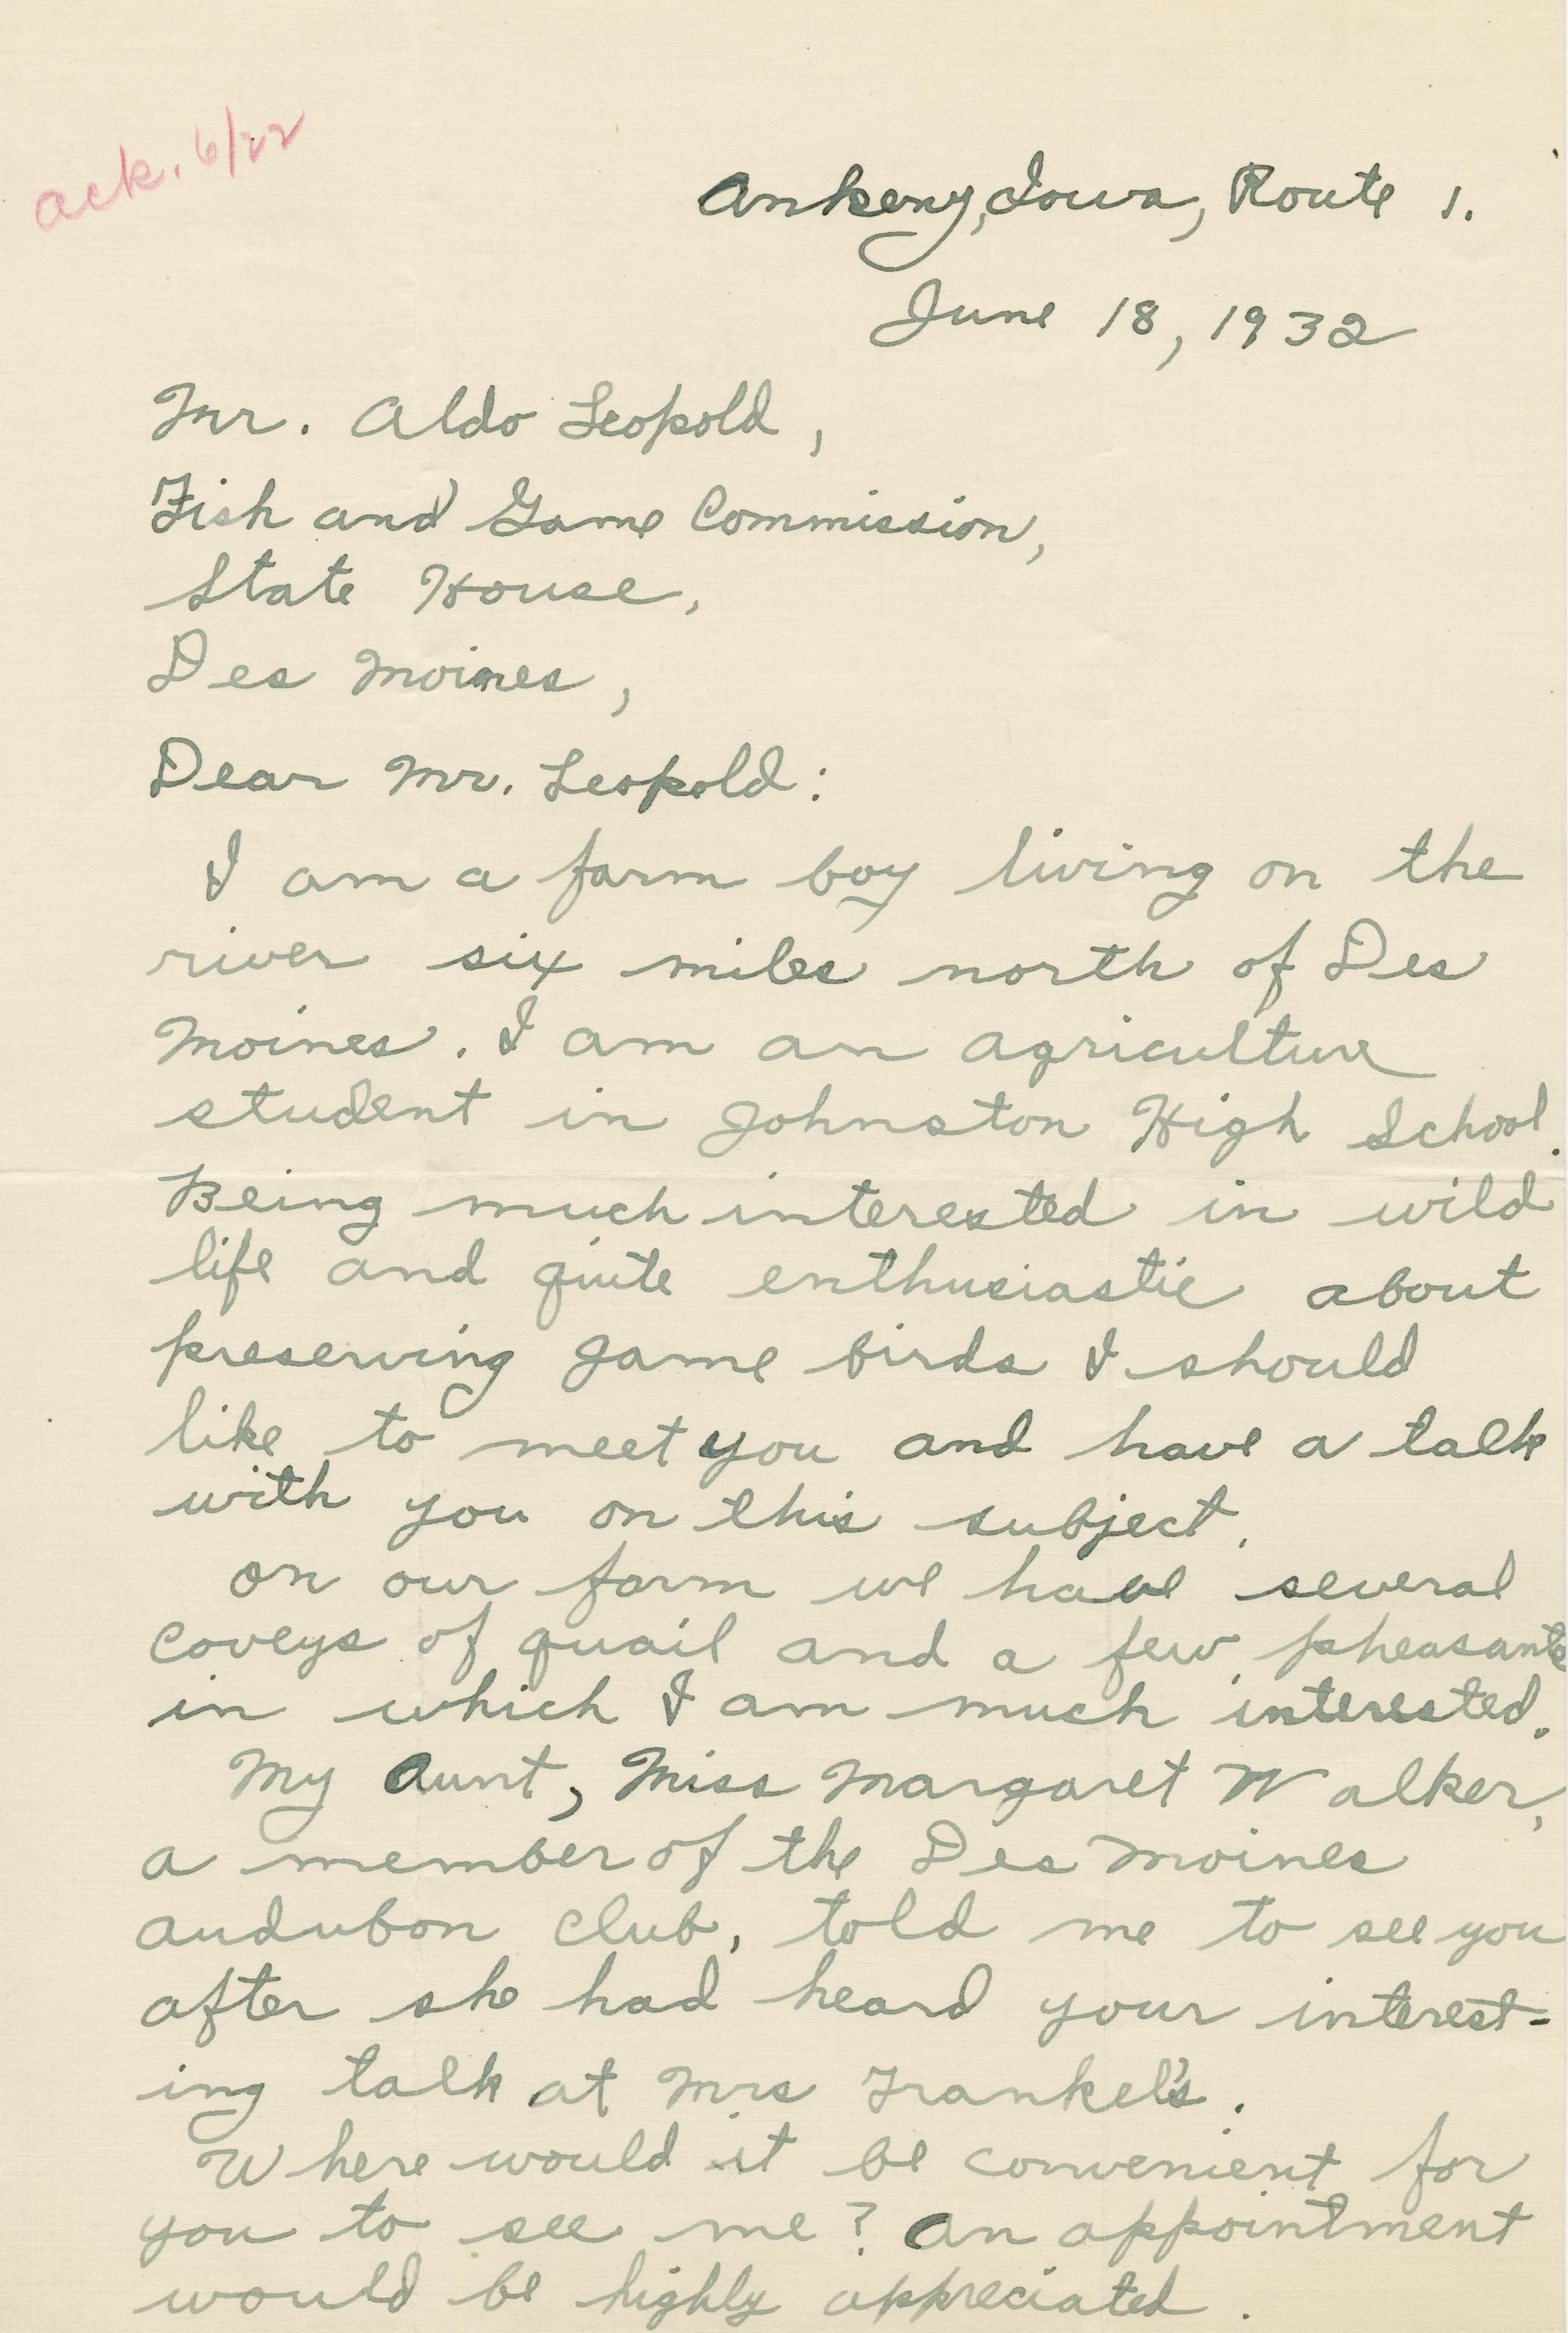 ack. 6/22
Ankeny, Iowa, Route 1.
June 18, 1932
Mr. Aldo Leopold,
Fish and Game Commission,
State House,
Des Moines,
Dear Mr. Leopold:
I am a farm boy living on the
river six miles north of Des
Moines. I am an agriculture
student in Johnston High School.
Being much interested in wild
life and quite enthusiastic about
preserving game birds I should
like to meet you and have a talk
with you on this subject.
On our farm we have several
coveys of quail and a few pheasants
in which I am much interested.
My Aunt, Miss Margaret Walker,
a member of the Des Moines
Audubon Club, told me to see you
after she had heard your interest-
ing talk at Mrs Frankel's.
Where would it be convenient for
you to see me? An appointment
would be highly appreciated.